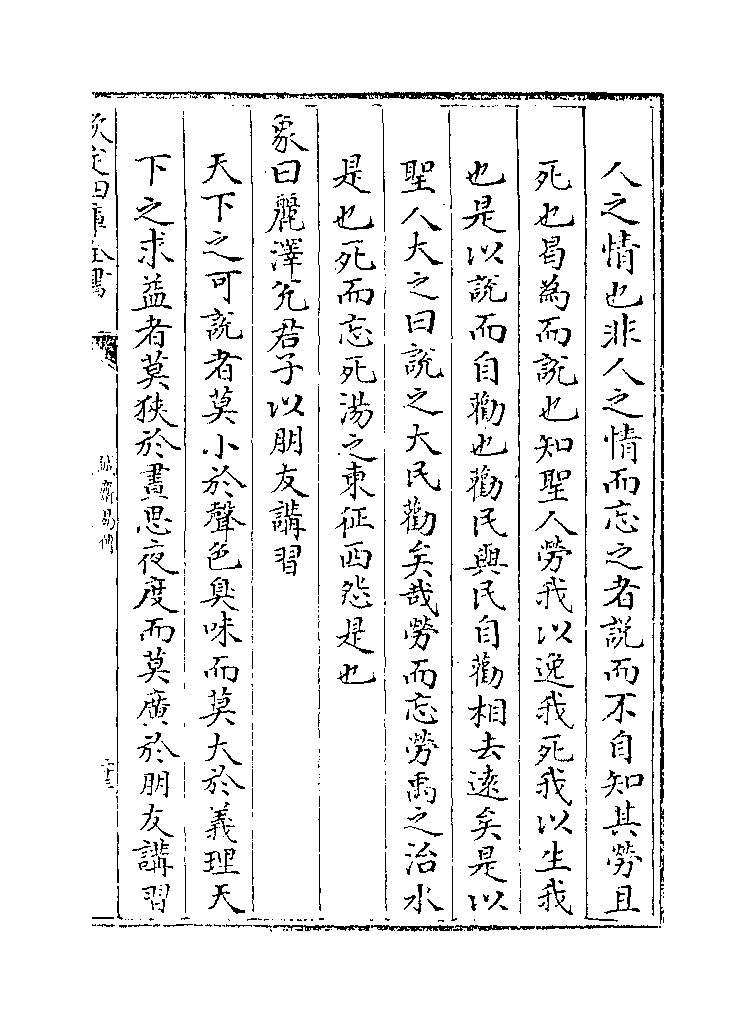 人之情也非人之情而忘之者説而不自知其勞且
死也曷為而説也知聖人勞我以逸我死我以生我
也是以説而自勸也勸民與民自勸相去逺矣是以
聖人大之曰説之大民勸矣哉勞而忘勞禹之治水
是也死而忘死湯之東征西怨是也
象曰麗澤兊君子以朋友講習
天下之可説者莫小於聲色臭味而莫大於義理天
下之求益者莫狹於晝思夜度而莫廣於朋友講習
欽定四庫全書
誠齋易傳